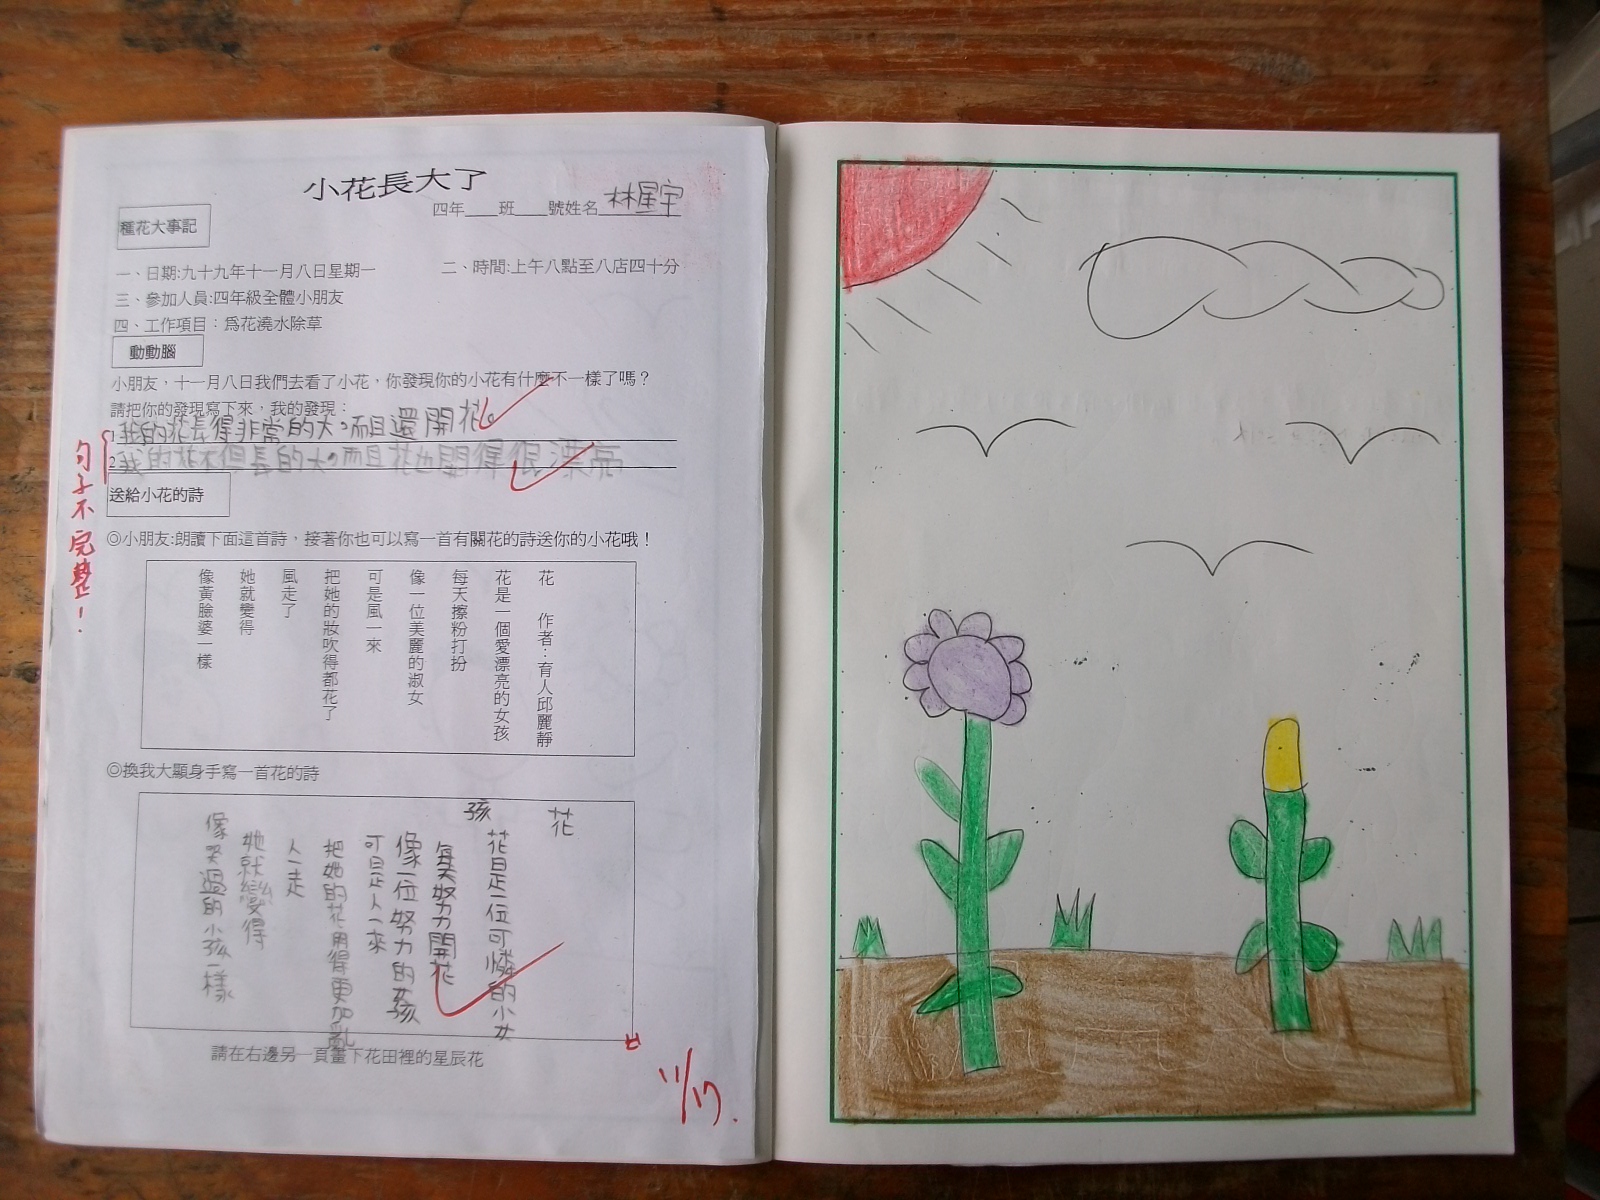 小花長大了
四年____班____號姓名林星宇
種花大事記
一、日期:九十九年十一月八日星期一
二、時間:上午八點至八店四十分
三、參加人員:四年級全體小朋友
四、工作項目：為花澆水除草
動動腦
小朋友，十一月八日我們去看了小花，你發現你的小花有什麼不一樣了嗎？
請把你的發現寫下來，我的發現：
1 我的花長得非常的大，而且還開花。
2 我的花不但長的大，而且花也開得很漂亮
句子不完整！
送給小花的詩
◎小朋友:朗讀下面這首詩，接著你也可以寫一首有關花的詩送你的小花哦！
花 作者：育人邱麗靜
花是一個愛漂亮的女孩
每天擦粉打扮
像一位美麗的淑女
可是風一來
把她的妝吹得都花了
風走了
她就變得
像黃臉婆一樣
◎換我大顯身手寫一首花的詩
花
花是一位可憐的小女
孩
每天努力開花
像一位努力的女孩
可是人一來
把她的花用得更加亂
人一走
她就變得
像哭過的小孩一樣
請在右邊另一頁畫下花田裡的星辰花
11/17.